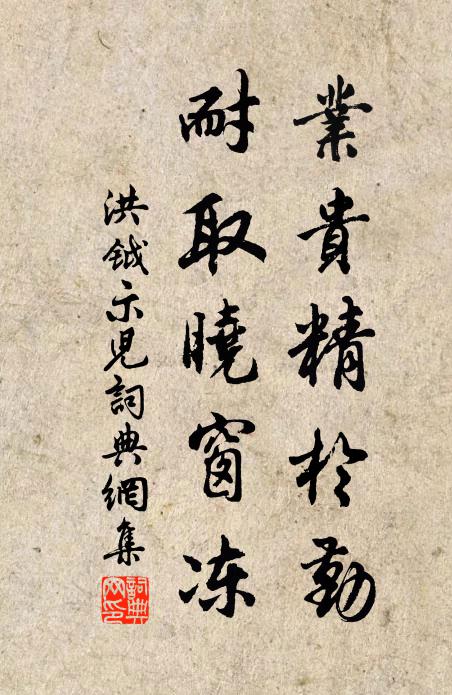 業貴精於勤
耐取曉窗凍
洪鉞示兒詞典網集
詞典
网印